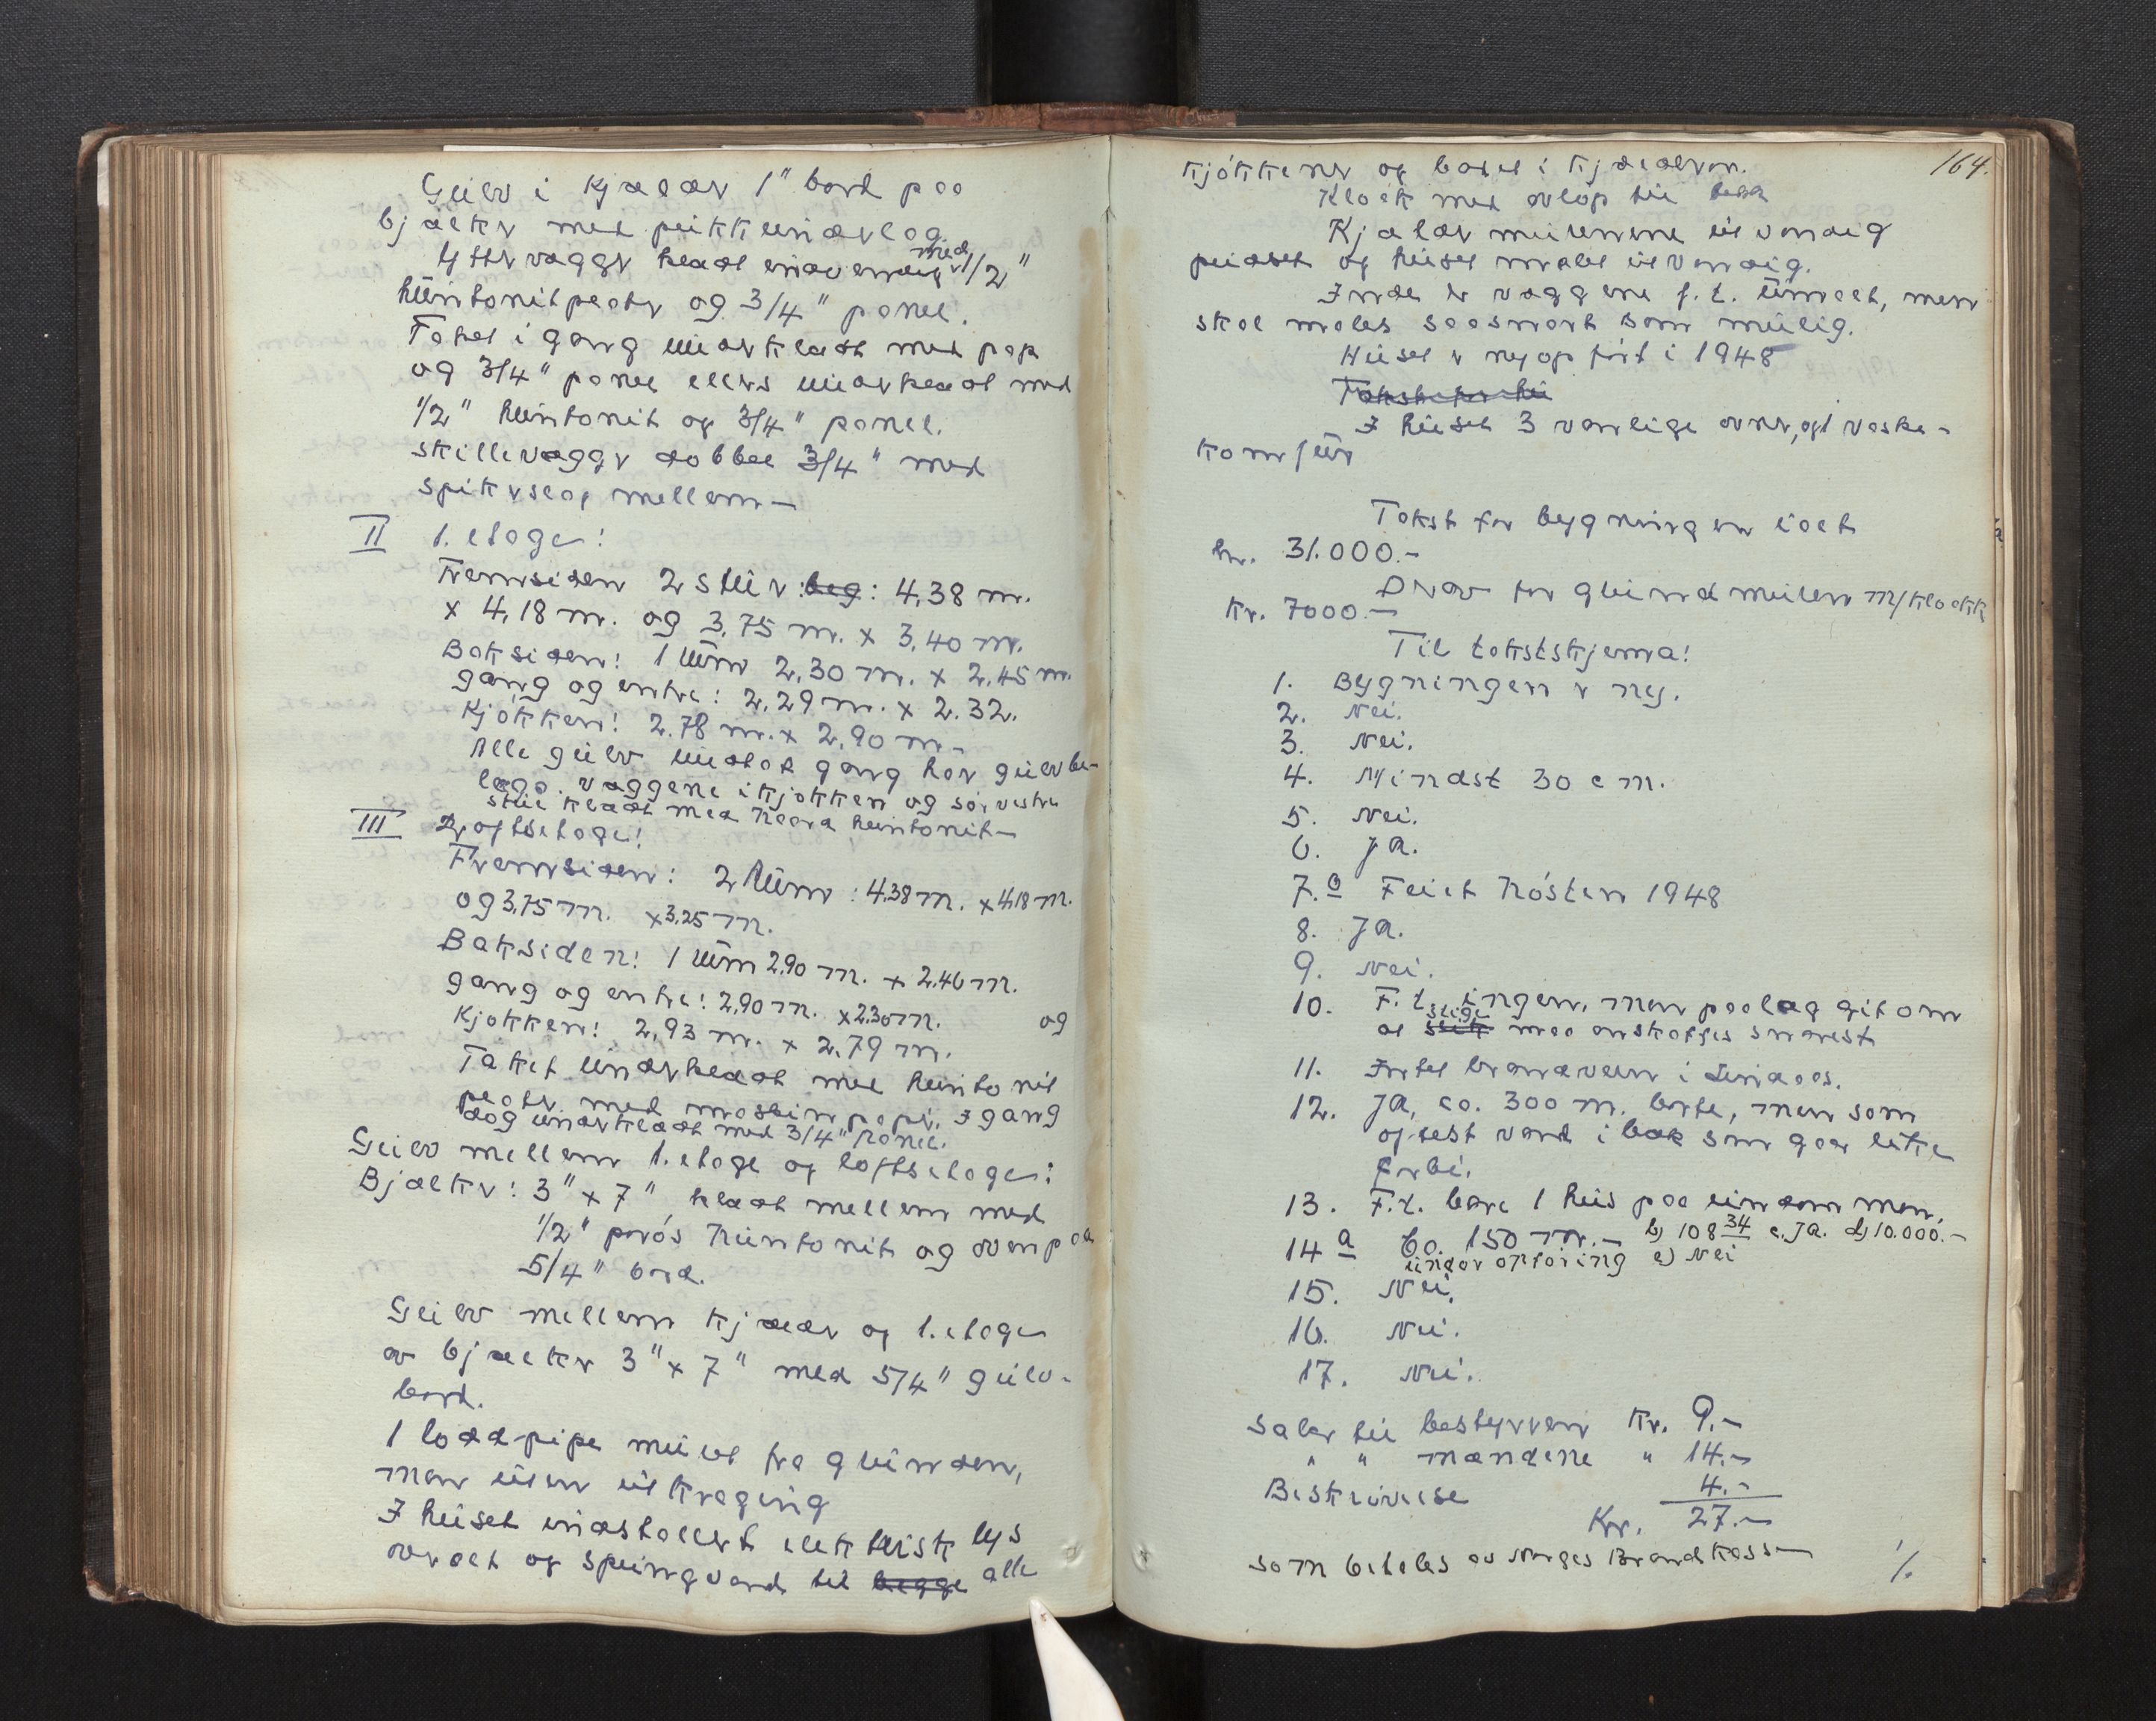 Gulv i kjæler 1" bord paa
bjælker med pukkunderlag.
Yttervægger klædt indvendig med 1/2"
huntonitplater og 3/4" panel.
Taket i gang underklædt med pap
og 3/4" panel ellers underklædt med
1/2" huntonit og 3/4" panel.
Skillevægger dobbel 3/4" med
spikerslag mellem-
II 1. etage:
Fremsiden 2 stuer: beg: 4,38 m.
x 4,18 m. og 3,75 m. x 3,40 m.
Baksiden: 1 rum 2,30 m. x 2,45 m.
gang og entre: 2,29 m. x 2.32.
Kjøkken: 2.78 m. x 2,90 m-
Alle gulv undtat gang har gulvbe-
læg. væggene i kjøkken og sørvestre
stue klædt med haard huntonit-
III Loftsetage:
Fremsiden: 2 Rum: 4,38 m. x 4,18 m.
og 3,75 m. x 3,25 m.
Baksiden: 1 Rum 2,90 m. x 2,46 m.
gang og entre: 2,90 m. x 2,30 m. og
Kjøkken: 2,93 m. x 2,79 m.
Taket underklædt med huntonit
plater med maskinpapir. I gang
dog underklædt med 3/4" panel.
Gulv mellem 1. etage og loftsetage:
Bjælker: 3" x 7", klædt mellem med
1/2" porøs huntonit og ovenpaa
5/4" bord.
Gulv mellem kjæler og 1. etage
av bjælker 3" x 7" med 5/4" gulv-
bord.
1 lodd-pipe muret fra grunden,
men uten utkraging
I huset indstallert elektrisk lys
overalt og springvand til begge alle
164.
kjøkkener og badet i kjælderen.
Kloak med avløp til bækk
Kjælermurene utvendig
pusset og huset malet utvendig.
Inde er væggene f. t. umalt, men
skal males saasnart som mulig.
Huset er nyopført i 1948
Takst for hu
I huset 3 vanlige ovner, og 1 vaske-
komfur
Takst for bygningen i alt
kr. 31.000.-
Drav for grundmuren m/kloakk
Kr. 7000.-
Til takstskjema:
1. Bygningen er ny.
2. Nei.
3. Nei.
4. Mindst 30 cm.
5. Nei.
6. Ja.
7. a Feiet høsten 1948
8. Ja.
9. Nei.
10. F. t. ingen, men paalæg git om
at slik slige maa anskaffes snarest
11. Intet brandvern i Lindaas.
12. Ja, ca. 300 m. borte, men som
oftest vand i bæk som gaar like
forbi.
13. F. t. bare 1 hus paa eiendommen.
14 a Ca. 150 m.- b) 108 34 c. Ja. d) 10.000.-
under opføring e) Nei
15. Nei.
16. Nei.
17. Nei.
Salær til bestyreren Kr. 9.-
" " mændene " 14.-
Beskrivelse 4.-
Kr. 27.-
som betales av Norges Brandkasse- ./.